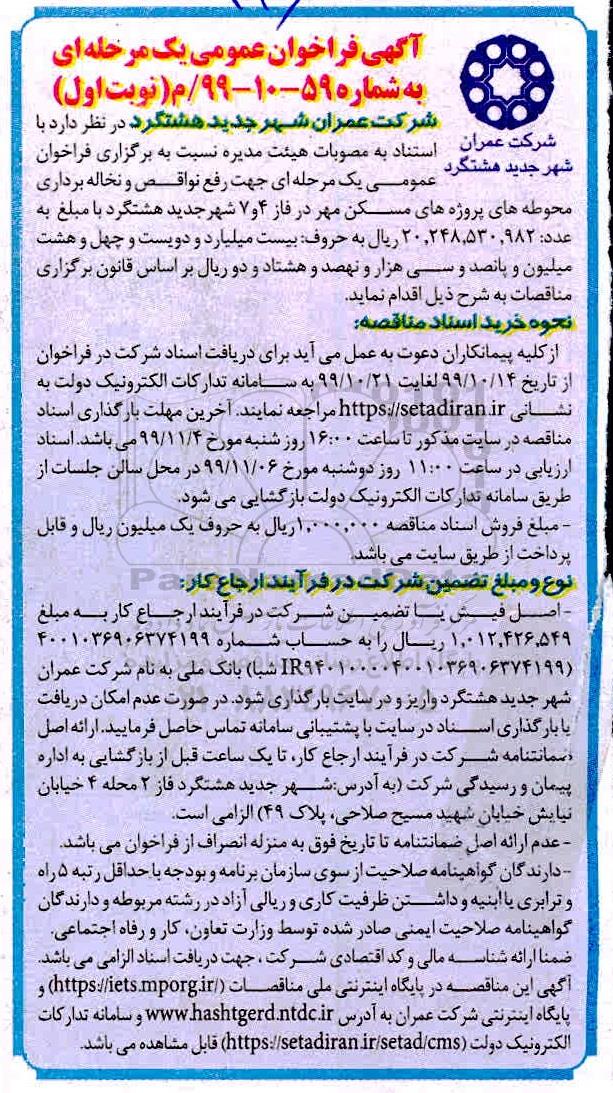 آگهی فراخوان عمومی یک مرحله ای
به شماره ۵۹-۱۰-۹۹/م (نوبت اول)
شرکت عمران
شهر جدید هشتگرد
شرکت عمران شهر جدید هشتگرد در نظر دارد با
استناد به مصوبات هیئت مدیره نسبت به برگزاری فراخوان
عمومی یک مرحله ای جهت رفع نواقص و نخاله برداری
محوطه های پروژه های مسکن مهر در فاز ۴و۷ شهر جدید هشتگرد با مبلغ به
عدد: ۲۰,۲۴۸,۵۳۰,۹۸۲ ریال به حروف: بیست میلیارد و دویست و چهل و هشت
میلیون و پانصد و سی هزار و نهصد و هشتاد و دو ریال بر اساس قانون برگزاری
مناقصات به شرح ذیل اقدام نماید.
نحوه خرید اسناد مناقصه:
از کلیه پیمانکاران دعوت به عمل می آید برای دریافت اسناد شرکت در فراخوان
از تاریخ ۹۹/۱۰/۱۴ لغایت ۹۹/۱۰/۲۱ به سامانه تدارکات الکترونیک دولت به
نشانی https://setadiran.ir مراجعه نمایند. آخرین مهلت بارگذاری اسناد
مناقصه در سایت مذکور تا ساعت ۱۶:۰۰ روز شنبه مورخ ۹۹/۱۱/۴ می باشد. اسناد
ارزیابی در ساعت ۱۱:۰۰ روز دوشنبه مورخ ۹۹/۱۱/۰۶ در محل سالن جلسات از
طریق سامانه تدارکات الکترونیک دولت بازگشایی می شود.
- مبلغ فروش اسناد مناقصه ۱,۰۰۰,۰۰۰ ریال به حروف یک میلیون ریال و قابل
پرداخت از طریق سایت می باشد.
نوع و مبلغ تضمین شرکت در فرآیند ارجاع کار:
- اصل فیش یا تضمین شرکت در فرآیند ارجاع کار به مبلغ
۱,۰۱۲,۴۲۶,۵۴۹ ریال را به حساب شماره ۴۰۰۱۰۳۶۹۰۶۳۷۴۱۹۹
(IR۹۴۰۱۰۰۰۰۴۰۰۱۰۳۶۹۰۶۳۷۴۱۹۹ شبا) بانک ملی به نام شرکت عمران
شهر جدید هشتگرد واریز و در سایت بارگذاری شود. در صورت عدم امکان دریافت
یا بارگذاری اسناد در سایت با پشتیبانی سامانه تماس حاصل فرمایید. ارائه اصل
ضمانتنامه شرکت در فرآیند ارجاع کار، تا یک ساعت قبل از بازگشایی به اداره
پیمان و رسیدگی شرکت (به آدرس: شهر جدید هشتگرد فاز ۲ محله ۴ خیابان
نیایش خیابان شهید مسیح صلاحی، پلاک ۴۹) الزامی است.
- عدم ارائه اصل ضمانتنامه تا تاریخ فوق به منزله انصراف از فراخوان می باشد.
- دارندگان گواهینامه صلاحیت از سوی سازمان برنامه و بودجه با حداقل رتبه ۵ راه
و ترابری یا ابنیه و داشتن ظرفیت کاری و ریالی آزاد در رشته مربوطه و دارندگان
گواهینامه صلاحیت ایمنی صادر شده توسط وزارت تعاون، کار و رفاه اجتماعی.
ضمنا ارائه شناسه مالی و کد اقتصادی شرکت، جهت دریافت اسناد الزامی می باشد.
آگهی این مناقصه در پایگاه اینترنتی ملی مناقصات (https://iets.mporg.ir/) و
پایگاه اینترنتی شرکت عمران به آدرس www.hashtgerd.ntdc.ir و سامانه تدارکات
الکترونیک دولت (https://setadiran.ir/setad/cms) قابل مشاهده می باشد.